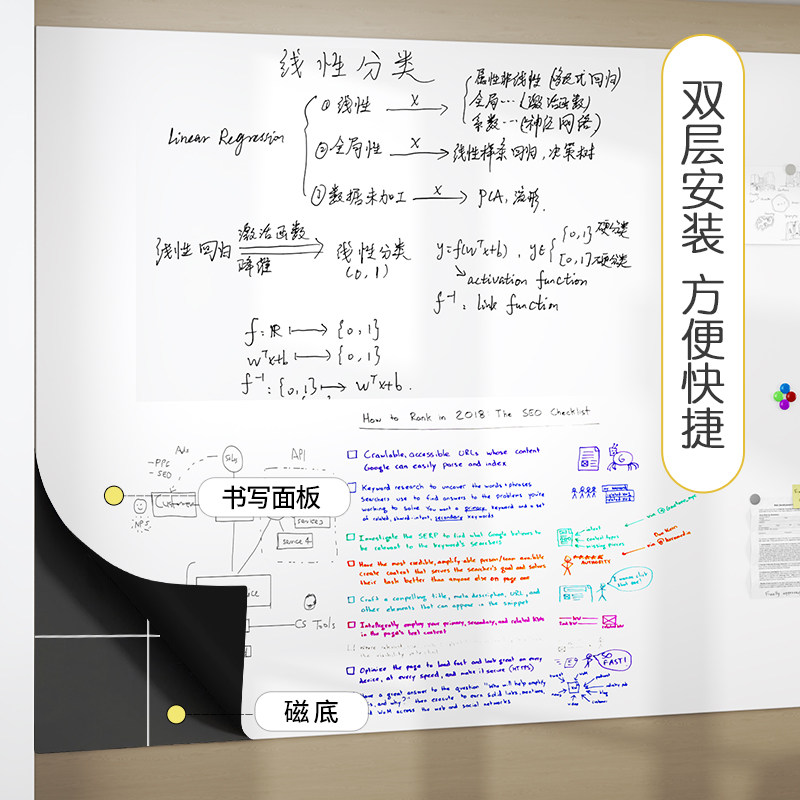 线性分类
Linear Regression
①线性 —X→
属性非线性（多项式回归）
全局…（激活函数）
系数…（神经网络）
②全局性 —X→ 线性样条回归，决策树
③数据未加工 —X→ PCA, 流形.
线性回归 激活函数 降维 线性分类
(0,1)
y=f(wᵀx+b), y∈ {0,1} 硬分类
[0,1] 硬分类
activation function
f⁻¹: link function
f: ℝ ↦ {0,1}
wᵀx+b ↦ {0,1}
f⁻¹: {0,1} ↦ wᵀx+b.
双层安装 方便快捷
How to Rank in 2018: The SEO Checklist
Crawlable, accessible URLs whose content
Google can easily parse and index
Keyword research to uncover the words + phrases
Searchers use to find answers to the problems you're
working to solve. You want a primary keyword and a set
of related, shared-intent, secondary keywords
Investigate the SERP to find what Google believes to
be relevant to the keyword's searchers
Have the most credible, amplifiable person/team available
create content that serves the searcher's goal and solves
their task better than anyone else on page one
Craft a compelling title, meta description, URL, and
other elements that can appear in the snippet
Intelligently employ your primary, secondary, and related KWs
in the page's text content
Optimize the page to load fast and look great on every
device, at every speed, and make it secure (HTTPS)
Have a great answer to the question "Who will help amplify
and why?" then execute to earn
across the web and social networks
AUTHORITY
SO
FAST!
Ads
-PPC
-SEO
API
NPS
Customer
service 4
CS Tools
书写面板
磁底